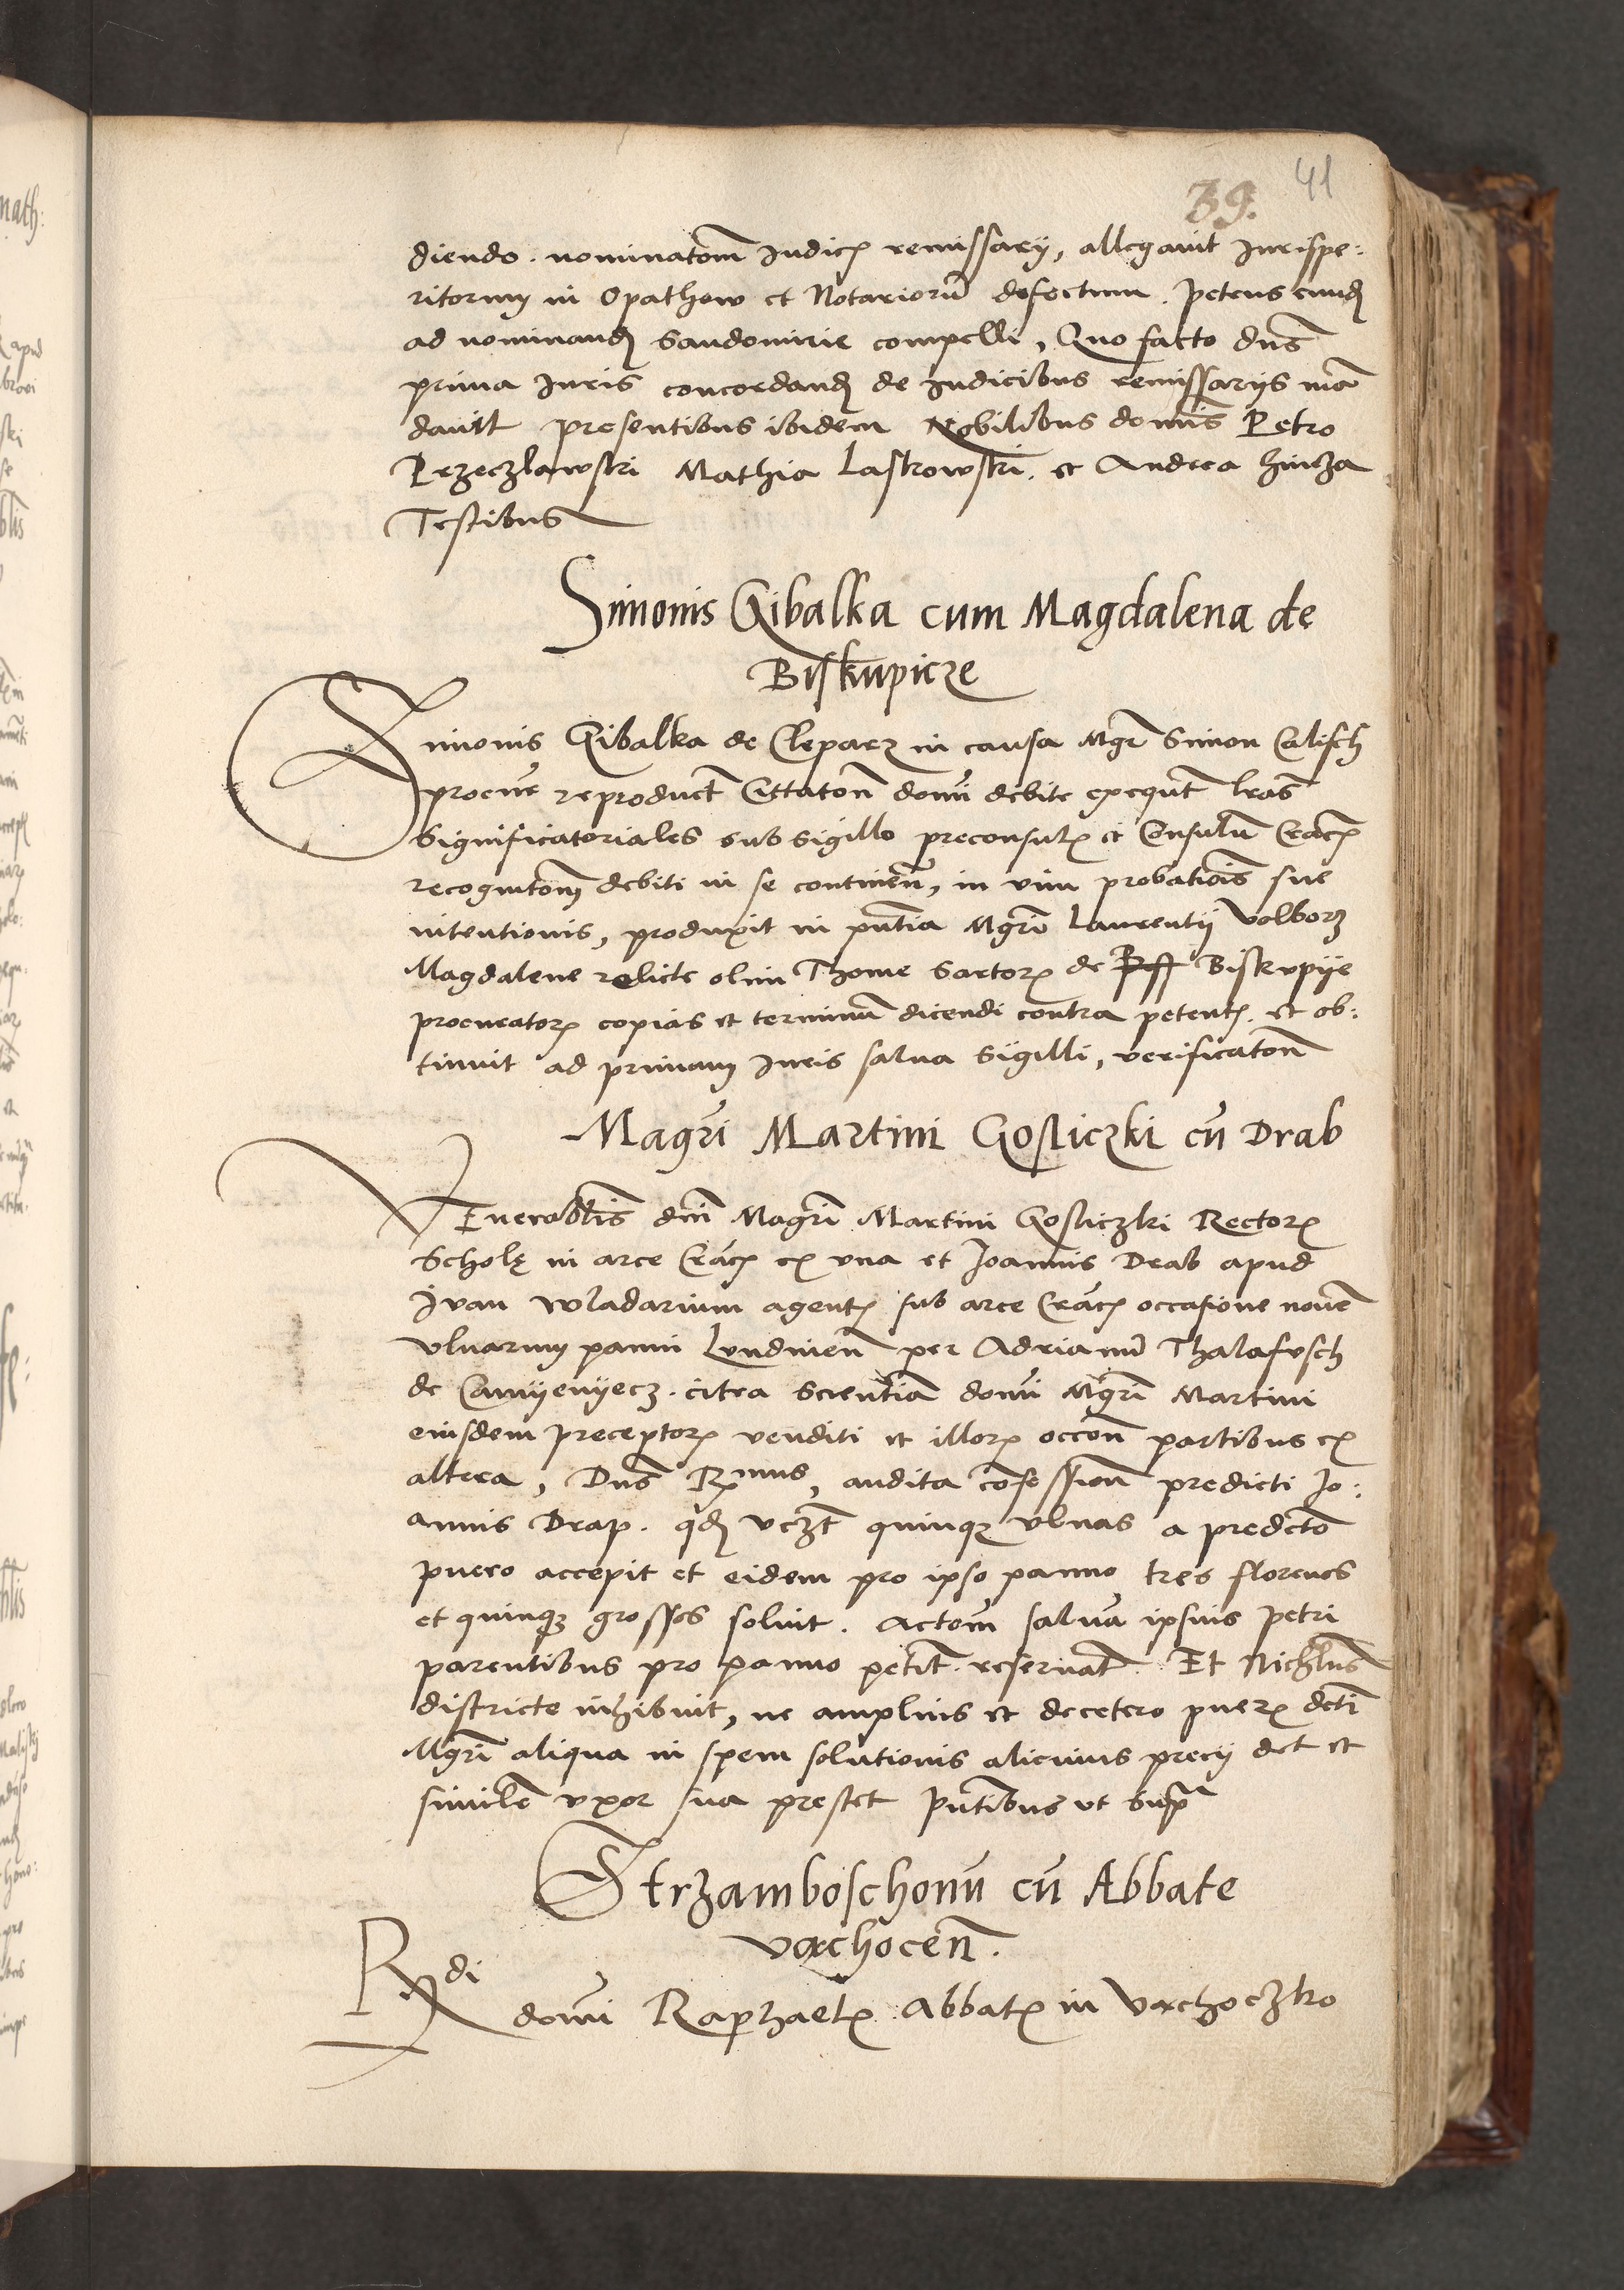 41
39.
diendo. nominatom Iudicz remissarij, allegavit Jurispe:
ritorum in Opathow et Notariorū defectum. Petens eund
ad nominand Sandomirie compelli, Quo facto Dns
prima Juris concordand de Iudicibus remissarijs man
davit presentibus ibidem Nobilibus domis Petro
Przeczlawski Mathia Laskowski. et Andrea
Testibus
Simonis Gibalka cum Magdalena de
Biskupicze
Simonis Gibalka de Cleparz in causa Mgr Simon Calisch
procur reproduct Cittaton domi debite exequt lras
Significatoriales sub sigillo preconsulz et Consulū Cracz
recognitom debiti in se continen, in vim probationis sue
intentionis, produxit in pntia Mgri Laurentij Volborz
Magdalene relicte olim Thome Sartorz de Biskupije
procuratorz copias et terminū dicendi contra petentz. et ob:
tinuit ad primam Juris salva Sigilli, verificaton
Magri Martini Gosliczki cū Drab
Venerablis dni Magri Martini Gosliczki Rectorz
Scholę in arce Cracz ex una et Joannis Drab apud
Ivan Wladarium agentz sub arce Cracz occasione novem
ulnarum panni Lundinen per Adrianū Thalafusch
de Camyenyecz. citra Scientia domi Mgri Martini
eiusdem preceptorz venditi et illorz occon partibus ex
altera, Dns Rmus, audita cofession predicti Jo:
annis Drap. qd vczt quinqz ulnas a predcto
puero accepit et eidem pro ipso panno tres florenos
et quinqz grossos solvit. Actom salva ipsius Petri
parentibus pro panno petit. reservat. Et Nichlus
districte inhibuit, ne amplius et decetero puerz dcti
Mgri aliqua in spem solutionis alicuius precij det et
simile uxor sua prestet pntibus ut supra
Strzamboschonū cū Abbate
vachocen.
Rdi
domi Raphaelz Abbatz in Vachoczko